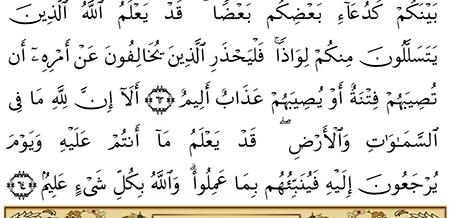 بَيْنَكُمْ كَدُعَآءِ بَعْضِكُم بَعْضًا ۚ قَدْ يَعْلَمُ ٱللَّهُ ٱلَّذِينَ
يَتَسَلَّلُونَ مِنكُمْ لِوَاذًا ۚ فَلْيَحْذَرِ ٱلَّذِينَ يُخَالِفُونَ عَنْ أَمْرِهِۦٓ أَن
تُصِيبَهُمْ فِتْنَةٌ أَوْ يُصِيبَهُمْ عَذَابٌ أَلِيمٌ ۝٦٣ أَلَآ إِنَّ لِلَّهِ مَا فِى
ٱلسَّمَـٰوَٰتِ وَٱلْأَرْضِ ۖ قَدْ يَعْلَمُ مَآ أَنتُمْ عَلَيْهِ وَيَوْمَ
يُرْجَعُونَ إِلَيْهِ فَيُنَبِّئُهُم بِمَا عَمِلُوا۟ ۗ وَٱللَّهُ بِكُلِّ شَىْءٍ عَلِيمٌۢ ۝٦٤